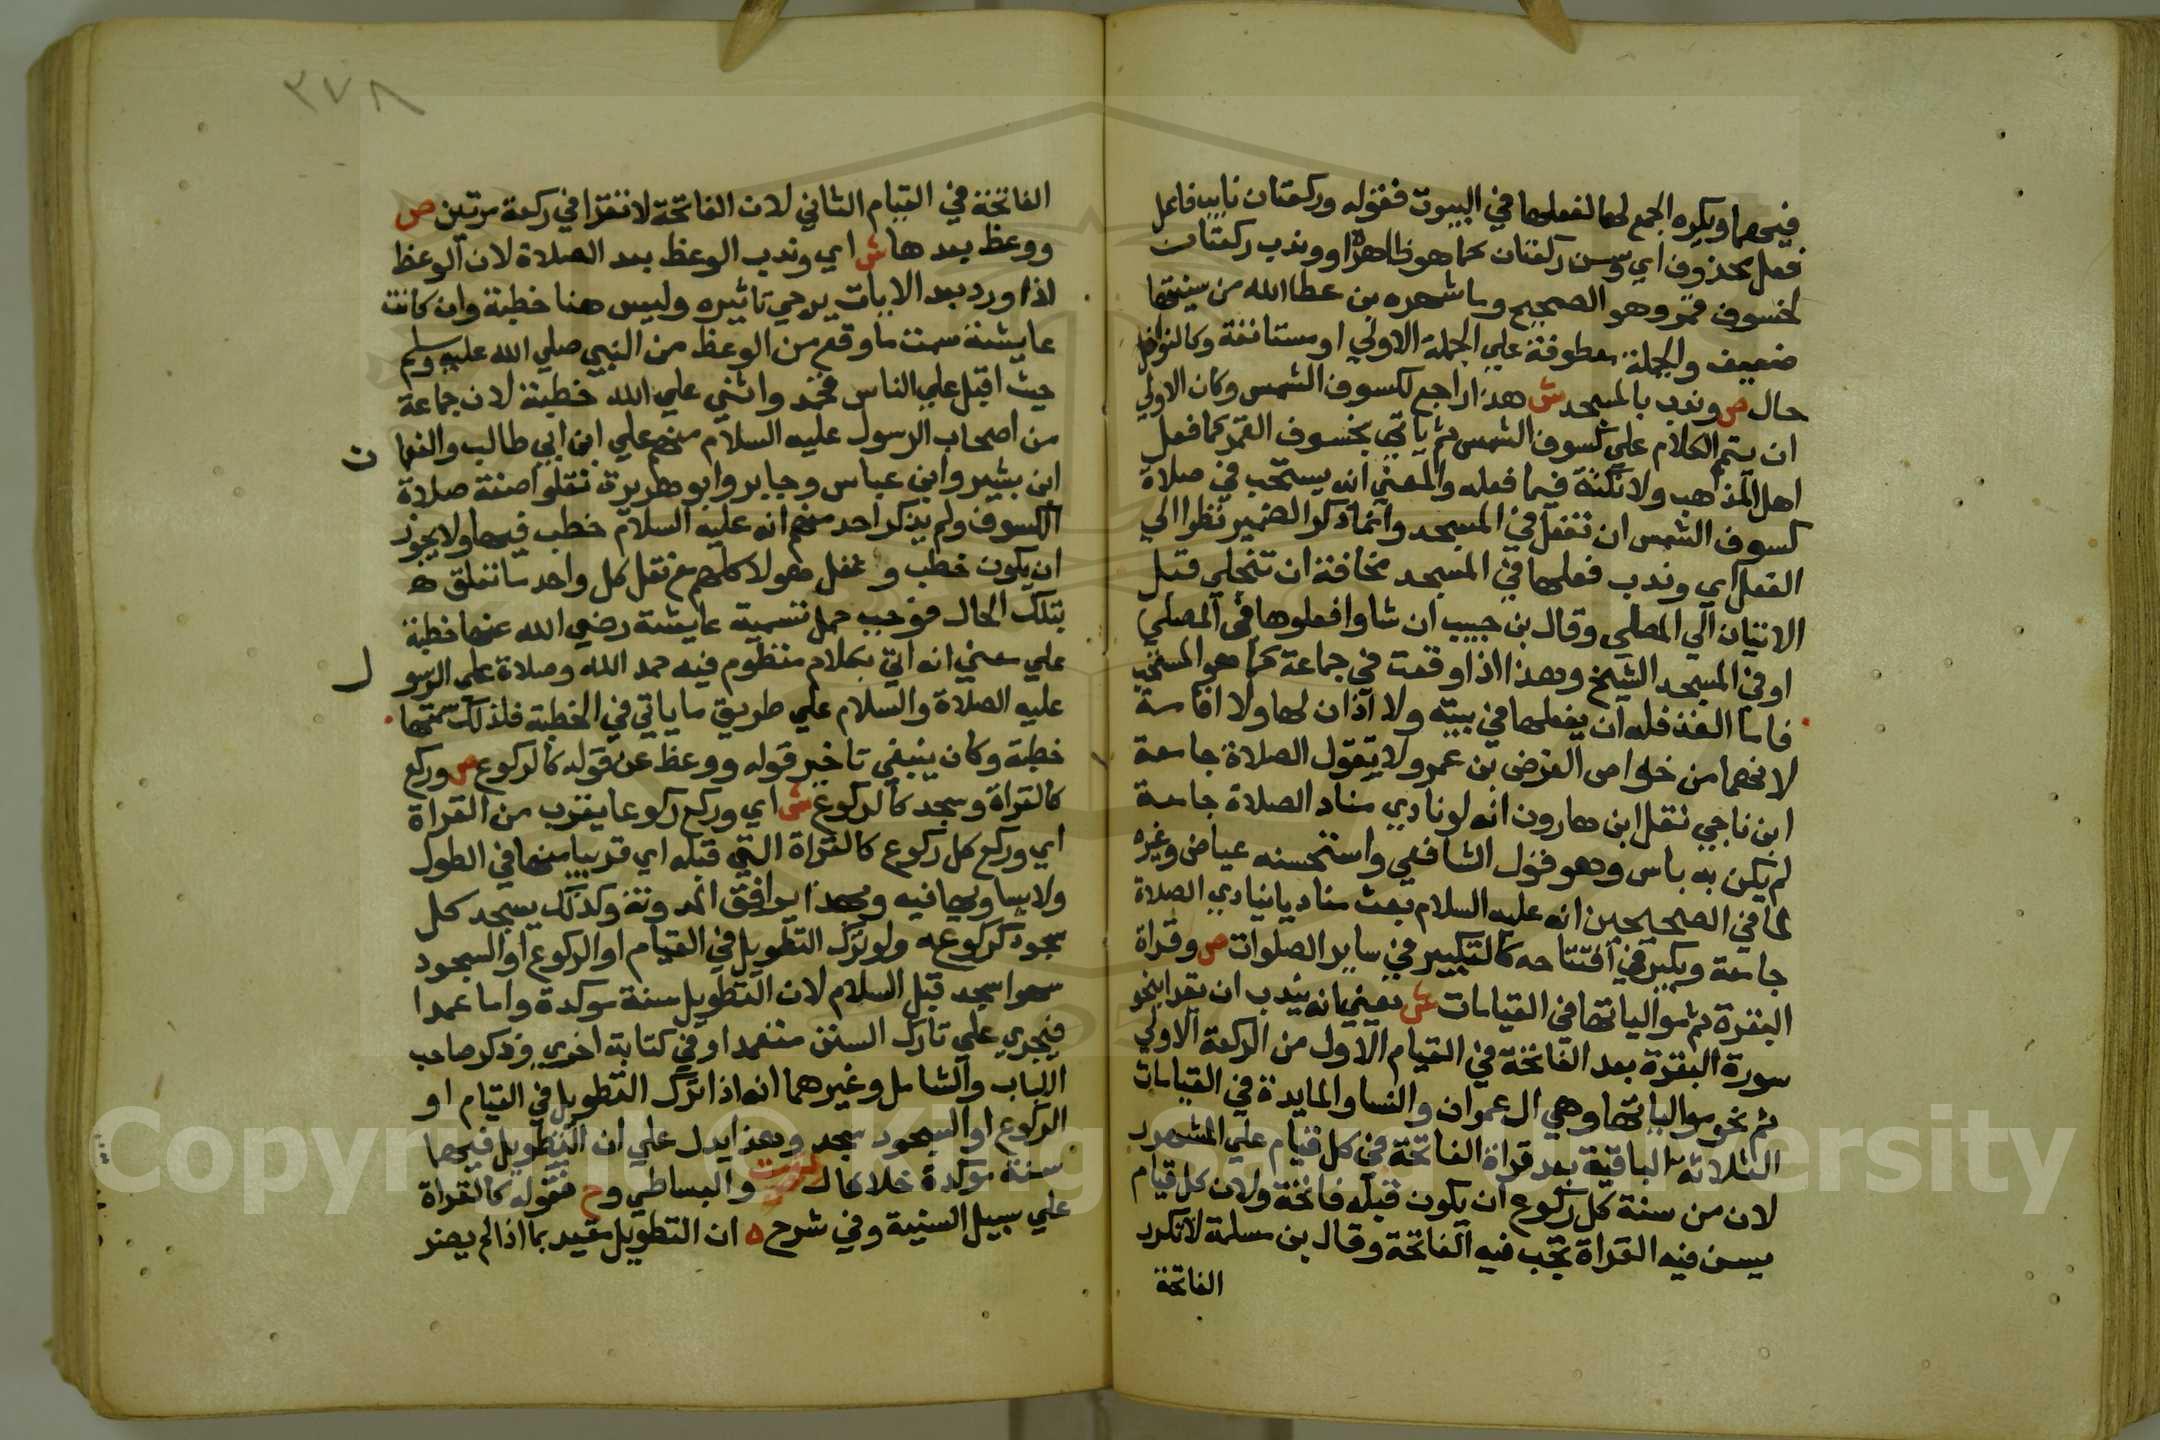 فيجمها ويكره الجمع لها لفعلها في البيوت فقوله وركعتان نايب فاعل
فعل محذوف اي وسن ركعتان كما هو ظاهره او وندب ركعتان
لخسوف قمر وهو الصحيح وما شهره بن عطا الله من سنيتها
ضعيف والجملة معطوفة علي الجملة الاولي او مستانفة وكالنوافل
حال ص وندب بالمسجد ش هذا راجع لكسوف الشمس وكان الاولي
ان يتم الكلام علي كسوف الشمس ثم ياتي بخسوف القمر كما فعل
اهل المذهب ولا نكتة فيما فعله والمعني انه يستحب في صلاة
كسوف الشمس ان تفعل في المسجد وانما ذكر الضمير نظرا الي
الفعل اي وندب فعلها في المسجد مخافة ان تنجلي قبل
الاتيان الي المصلي وقال بن حبيب ان شاوا فعلوها في المصلي
او في المسجد الشيخ وهذا اذا وقعت في جماعة كما هو المستحب
فاما الفذ فله ان يفعلها في بيته ولا اذان لها ولا اقامة
لانهما من خواص الفرض بن عمر ولا يقول الصلاة جامعة
ابن ناجي نقل ابن هارون انه لو نادي مناد الصلاة جامعة
لم يكن به باس وهو قول الشافعي واستحسنه عياض وغيره
لما في الصحيحين انه عليه السلام بعث مناديا ينادي الصلاة
جامعة ويكبر في افتتاحه كالتكبير في ساير الصلوات ص وقراة
البقرة ثم موالياتها في القيامات ش يعني انه يندب ان يقرا بنحو
سورة البقرة بعد الفاتحة في القيام الاول من الركعة الاولي
ثم نحو موالياتها وهي ال عمران والنسا والمايدة في القيامات
الثلاثة الباقية بعد قراة الفاتحة في كل قيام علي المشهور
لان من سنة كل ركوع ان يكون قبله فاتحة ولان كل قيام
يسن فيه القراة تجب فيه الفاتحة وقال بن مسلمة لا تكرر
الفاتحة
٣٧٨
الفاتحة في القيام الثاني لان الفاتحة لا تقرا في ركعة مرتين ص
ووعظ بعدها ش اي وندب الوعظ بعد الصلاة لان الوعظ
اذا ورد بعد الايات يرجي تاثيره وليس هنا خطبة وان كانت
عايشة سمت ما وقع من الوعظ من النبي صلي الله عليه وسلم
حيث اقبل علي الناس فحمد واثني علي الله خطبة لان جماعة
من اصحاب الرسول عليه السلام منهم علي ابن ابي طالب والنعما ن
ابن بشير وابن عباس وجابر وابو هريرة نقلوا صفة صلاة
الكسوف ولم يذكر احد منهم انه عليه السلام خطب فيها ولا يجوز
ان يكون خطب و غفل هولا كلهم مع نقل كل واحد ما تعلق ه
بتلك الحال فوجب حمل تسمية عايشة رضي الله عنها خطبة
علي معني انه اتي بكلام منظوم فيه حمد الله وصلاة علي الرسو ل
عليه الصلاة والسلام علي طريق ما ياتي في الخطبة فلذلك سمتها
خطبة وكان ينبغي تاخير قوله ووعظ عن قوله كالركوع ص وركع
كالقراة وسجد كالركوع ش اي وركع ركوعا يقرب من القراة
اي وركع كل ركوع كالقراة التي قبله اي قريبا منها في الطول
ولا يساويها فيه وبهذا يوافق المدونة وكذلك يسجد كل
سجود كركوعه ولو ترك التطويل في القيام او الركوع او السجود
سهوا سجد قبل السلام لان التطويل سنة موكدة واما عمدا
فيجري علي تارك السنن متعمدا وفي كتابة اخري وذكر صاحب
اللباب والشامل وغيرهما انه اذا ترك التطويل في القيام او
الركوع او السجود سجد وهذا يدل علي ان التطويل فيهما
سنة موكدة خلافا ل والبساطي وح فقوله كالقراة
علي سبيل السنية وفي شرح ه ان التطويل مقيد بما اذا لم يضر